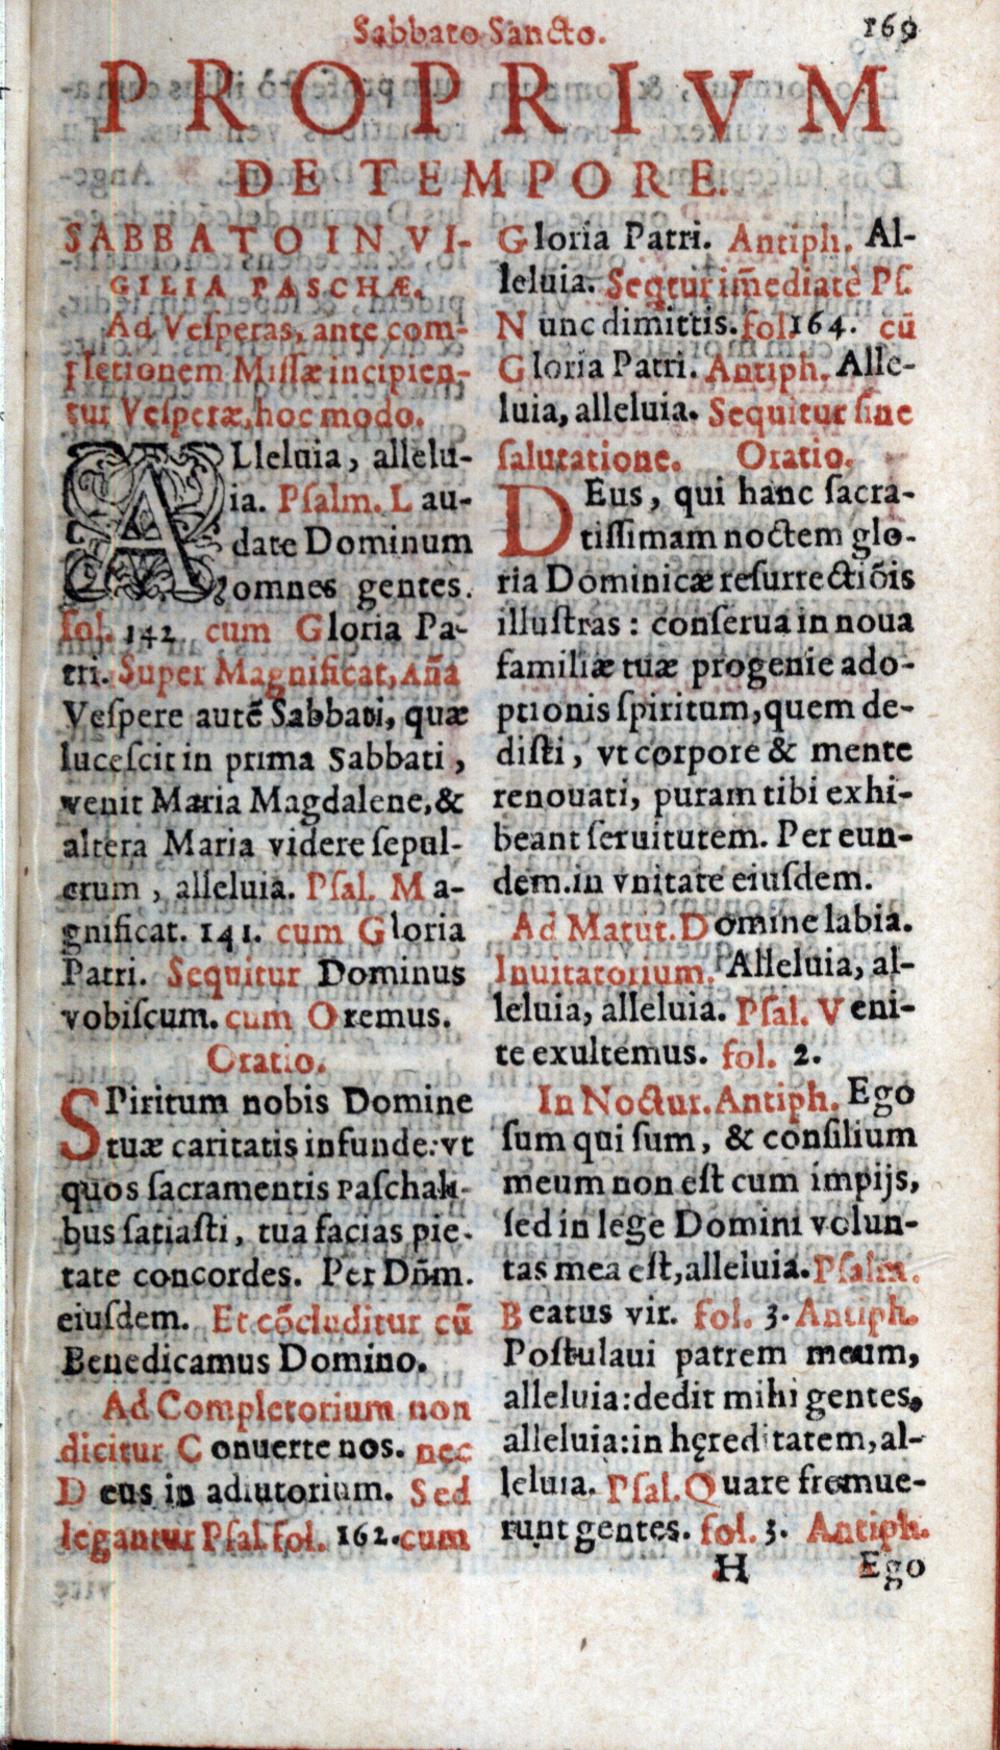 Sabbato Sancto. 169
PROPRIVM
DE TEMPORE.
SABBATO IN VI-
GILIA PASCHÆ.
Ad Veſperas, ante com-
pletionem Miſſæ incipien-
tur Veſperæ, hoc modo.
ALleluia, allelu-
ia. Pſalm. Lau-
date Dominum
omnes gentes.
fol. 142 cum Gloria Pa-
tri. Super Magnificat, Aña
Veſpere autē Sabbati, quæ
luceſcit in prima Sabbati,
venit Maria Magdalene, &
altera Maria videre ſepul-
crum, alleluia. Pſal. Ma-
gnificat. 141. cum Gloria
Patri. Sequitur Dominus
vobiſcum. cum Oremus.
Oratio.
SPiritum nobis Domine
tuæ caritatis infunde: vt
quos ſacramentis paſchali-
bus ſatiaſti, tua facias pie-
tate concordes. Per Dñm.
eiuſdem. Et cōcluditur cū
Benedicamus Domino.
Ad Completorium non
dicitur Conuerte nos. nec
Deus in adiutorium. Sed
legantur Pſal. fol. 162. cum
Gloria Patri. Antiph. Al-
leluia. Seqtur im̄ediatè Pſ.
Nunc dimittis. fol. 164. cū
Gloria Patri. Antiph. Alle-
luia, alleluia. Sequitur ſine
ſalutatione. Oratio.
DEus, qui hanc ſacra-
tiſſimam noctem glo-
ria Dominicæ reſurrectiōis
illuſtras: conſerua in noua
familiæ tuæ progenie ado-
ptionis ſpiritum, quem de-
diſti, vt corpore & mente
renouati, puram tibi exhi-
beant ſeruitutem. Per eun-
dem. in vnitate eiuſdem.
Ad Matut. Domine labia.
Inuitatorium. Alleluia, al-
leluia, alleluia. Pſal. Veni-
te exultemus. fol. 2.
In Noctur. Antiph. Ego
ſum qui ſum, & conſilium
meum non eſt cum impijs,
ſed in lege Domini volun-
tas mea eſt, alleluia. Pſalm.
Beatus vir. fol. 3. Antiph.
Poſtulaui patrem meum,
alleluia: dedit mihi gentes,
alleluia: in hęreditatem, al-
leluia. Pſal. Quare fremue-
runt gentes. fol. 3. Antiph.
H Ego